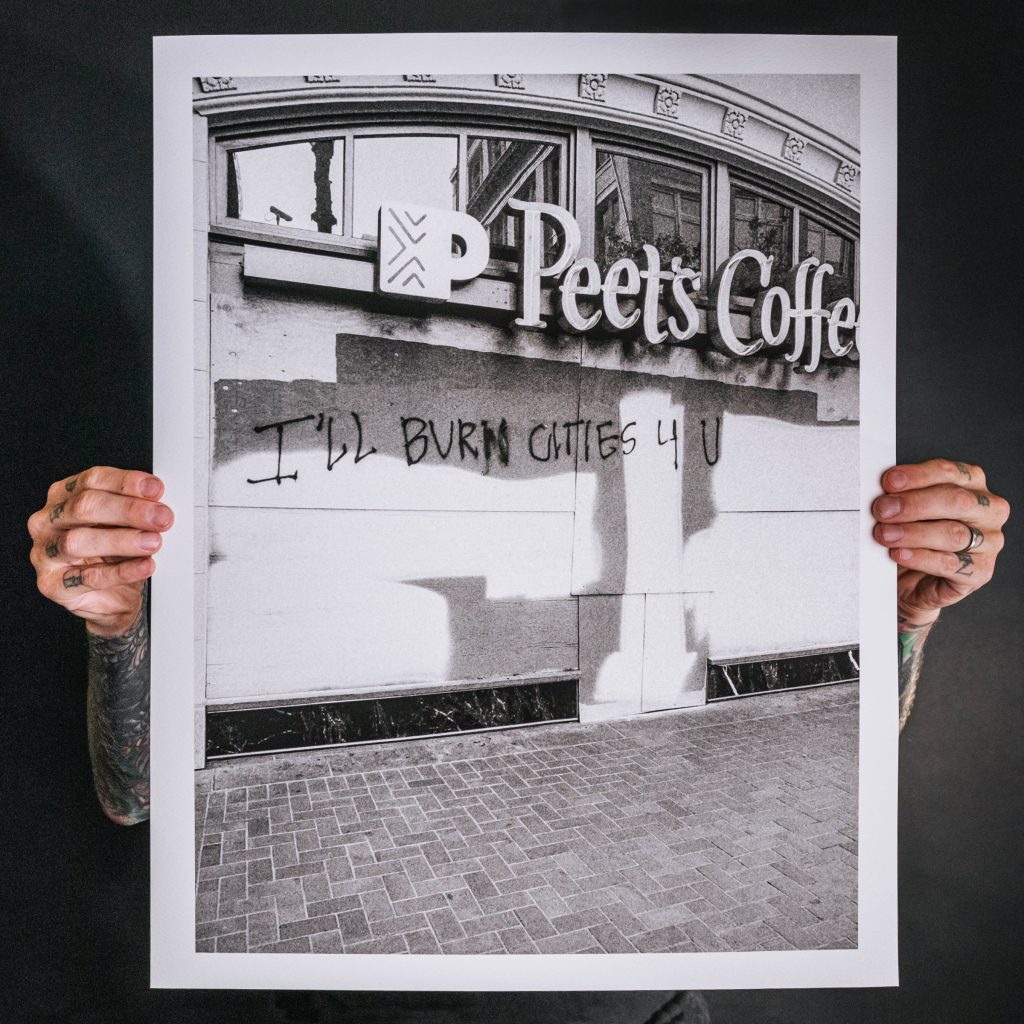 P
Peet's Coffee
I'LL BURN CITIES 4 U